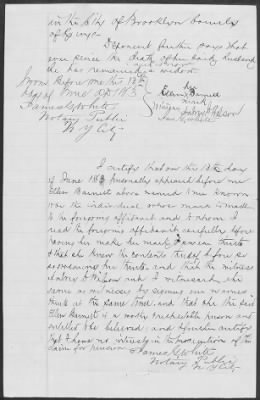 in the City of Brooklyn County
of Kings
Deponent further says that
ever since the death of her said husband
she has remained a widow
Sworn before me this 13th
day of June AD 1883
James G White
Notary Public
N Y City
Ellen Barnett
her
mark
Witness
I certify that on the 13th day
of June 1883 personally appeared before me
Ellen Barnett above named to me known
to be the individual whose mark is made
to the foregoing affidavit and to whom I
read the foregoing affidavit carefully before
having her make her mark
that she knew the contents thereof before so
and that the witness
and I witnessed the
same as witnesses by signing our names
at the same time, and that she the said
Ellen Barnett is a worthy respectable person and
entitled to be believed; and I further certify
that I have no interest in the prosecution of this
claim for pension
James G White
Notary Public
N Y City